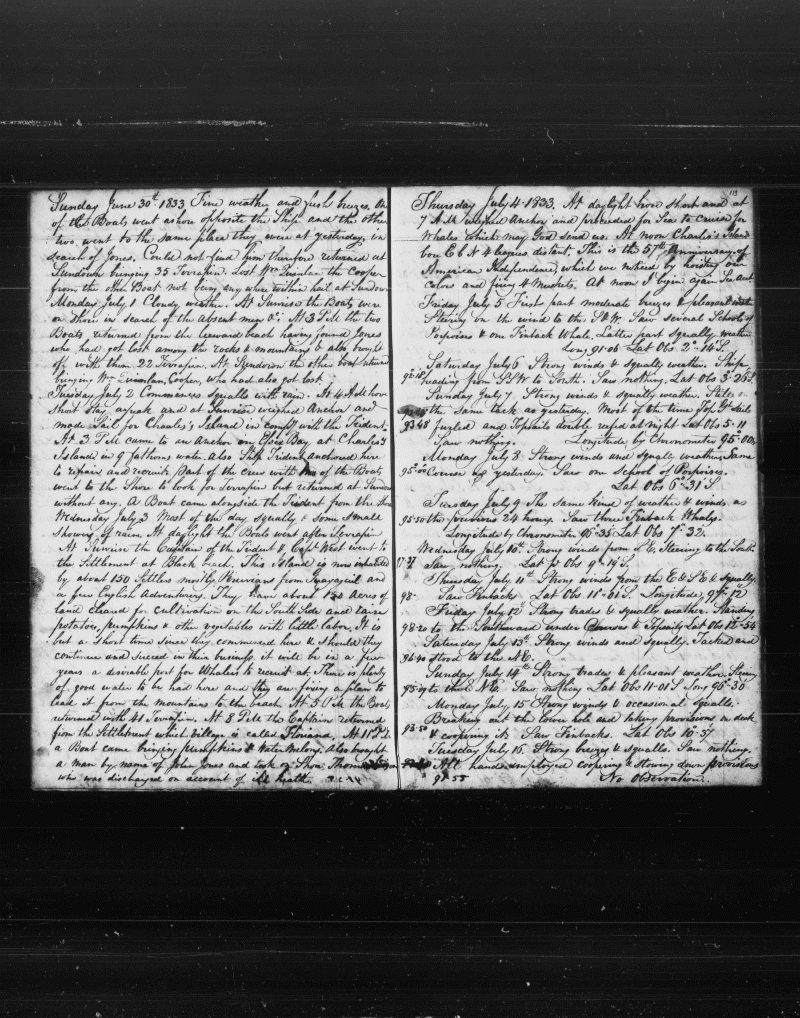 Sunday June 30th 1833 Fine weather and fresh breezes. One
of the Boats went ashore opposite the Ship and the other
two went to the same place they were at yesterday, in
search of Jones. Could not find him therefore returned at
Sundown bringing 35 Terrapin. Lost Wm Quinlan the Cooper
from the other Boat not being any where within hail at Sundown
Monday July 1 Cloudy weather. At Sunrise the Boats were
on Shore in search of the absent men &c. At 3 P.M. the two
Boats returned from the leeward beach having found Jones
who had got lost among the rocks & mountains & also brought
off with them 22 Terrapin. At Sundown the other boat returned
bringing Wm Quinlan, Cooper, who had also got lost.
Tuesday July 2 Commences Squalls with rain. At 4 A.M. hove
Short Stay apeak and at Sunrise weighed Anchor and
made Sail for Charles's Island in comp.y with the Trident.
At 3 P.M. came to an Anchor in Bay, at Charles's
Island in 9 fathoms water. Also Ship Trident anchored here
to repair and recruit. Part of the crew with one of the Boats
went to the Shore to look for Terrapin but returned at Sundown
without any. A Boat came alongside the Trident from the Shore
Wednesday July 3 Most of the day squally & some small
showers of rain. At daylight the Boats went after Terrapin
At Sunrise the Captain of the Trident & Capt West went to
the Settlement at Black beach. This Island is now inhabited
by about 150 Settlers mostly Peruvians from Guayaquil and
a few English Adventurers. They have about 150 Acres of
land cleared for cultivation on the South Side and raise
potatoes, pumpkins & other vegetables with little labor. It is
but a short time since they commenced here & should they
continue and succeed in their business it will be in a few
years a desirable port for Whalers to recruit at. There is plenty
of good water to be had here and they are fixing a plan to
lead it from the mountains to the beach. At 5 P.M. the Boats
returned with 41 Terrapin. At 8 P.M. the Captain returned
from the Settlement which village is called Floriana. At 11
a Boat came bringing pumpkins & Water Melons. Also brought
a man by name of John Jones and took on Shore Thomas
who was discharged on account of ill health.
113
Thursday July 4 1833. At daylight hove short and at
7 A.M. weighed Anchor and proceeded for Sea to cruise for
Whales which may God send us. At noon Charles's Island
bore E b N 4 leagues distant. This is the 57th Anniversary of
American Independence, which we noticed by hoisting our
Colors and firing 4 Muskets. At noon I begin again Sea acct
Friday July 5 First part moderate breezes & pleasant weather
Steering on the wind to the S & W. Saw several Schools of
Porpoises & one Finback Whale. Latter part squally weather
Long 91-06 Lat Obs 2°-14 S.
Saturday July 6 Strong winds & squally weather. Ship
heading from SSW to South. Saw nothing. Lat Obs 3-26 S.
Sunday July 7 Strong winds & squally weather. Still on
the same tack as yesterday. Most of the time Top Gt Sails
93 48 furled and Topsails double reefed at night Lat Obs 5-11
Saw nothing. Longitude by Chronometer 95-00
Monday July 8 Strong winds and squally weather same
95-00 Course as yesterday. Saw one School of Porpoises.
Lat Obs 6°-31 S
Tuesday July 9 The same kind of weather & winds as
95-50 the previous 24 hours. Saw three Finback Whales.
Longitude by Chronometer 96-35 Lat Obs 7°-32.
Wednesday July 10th Strong winds from S.E. Steering to the South
Saw nothing. Lat Obs 9°-14 S.
Thursday July 11th Strong winds from the E & S E & squally
98- Saw Finbacks Lat Obs 11-01 S Longitude, 97°-12
Friday July 12th Strong trades & squally weather. Standing
98-20 to the Southward under Courses & Topsails Lat Obs 12-54
Saturday July 13th Strong winds and squally. Tacked and
96-40 stood to the N.E.
Sunday July 14th Strong trades & pleasant weather. Steering
to the N.E. Saw nothing Lat Obs 11-01 S Long 96-30
Monday July 15 Strong winds & occasional squalls.
Breaking out the lower hold and taking provisions on deck
& coopering it. Saw Finbacks. Lat Obs 10-37
Tuesday July 16. Strong breezes & squalls. Saw nothing.
All hands employed coopering & stowing down provisions
91-55 No Observation.